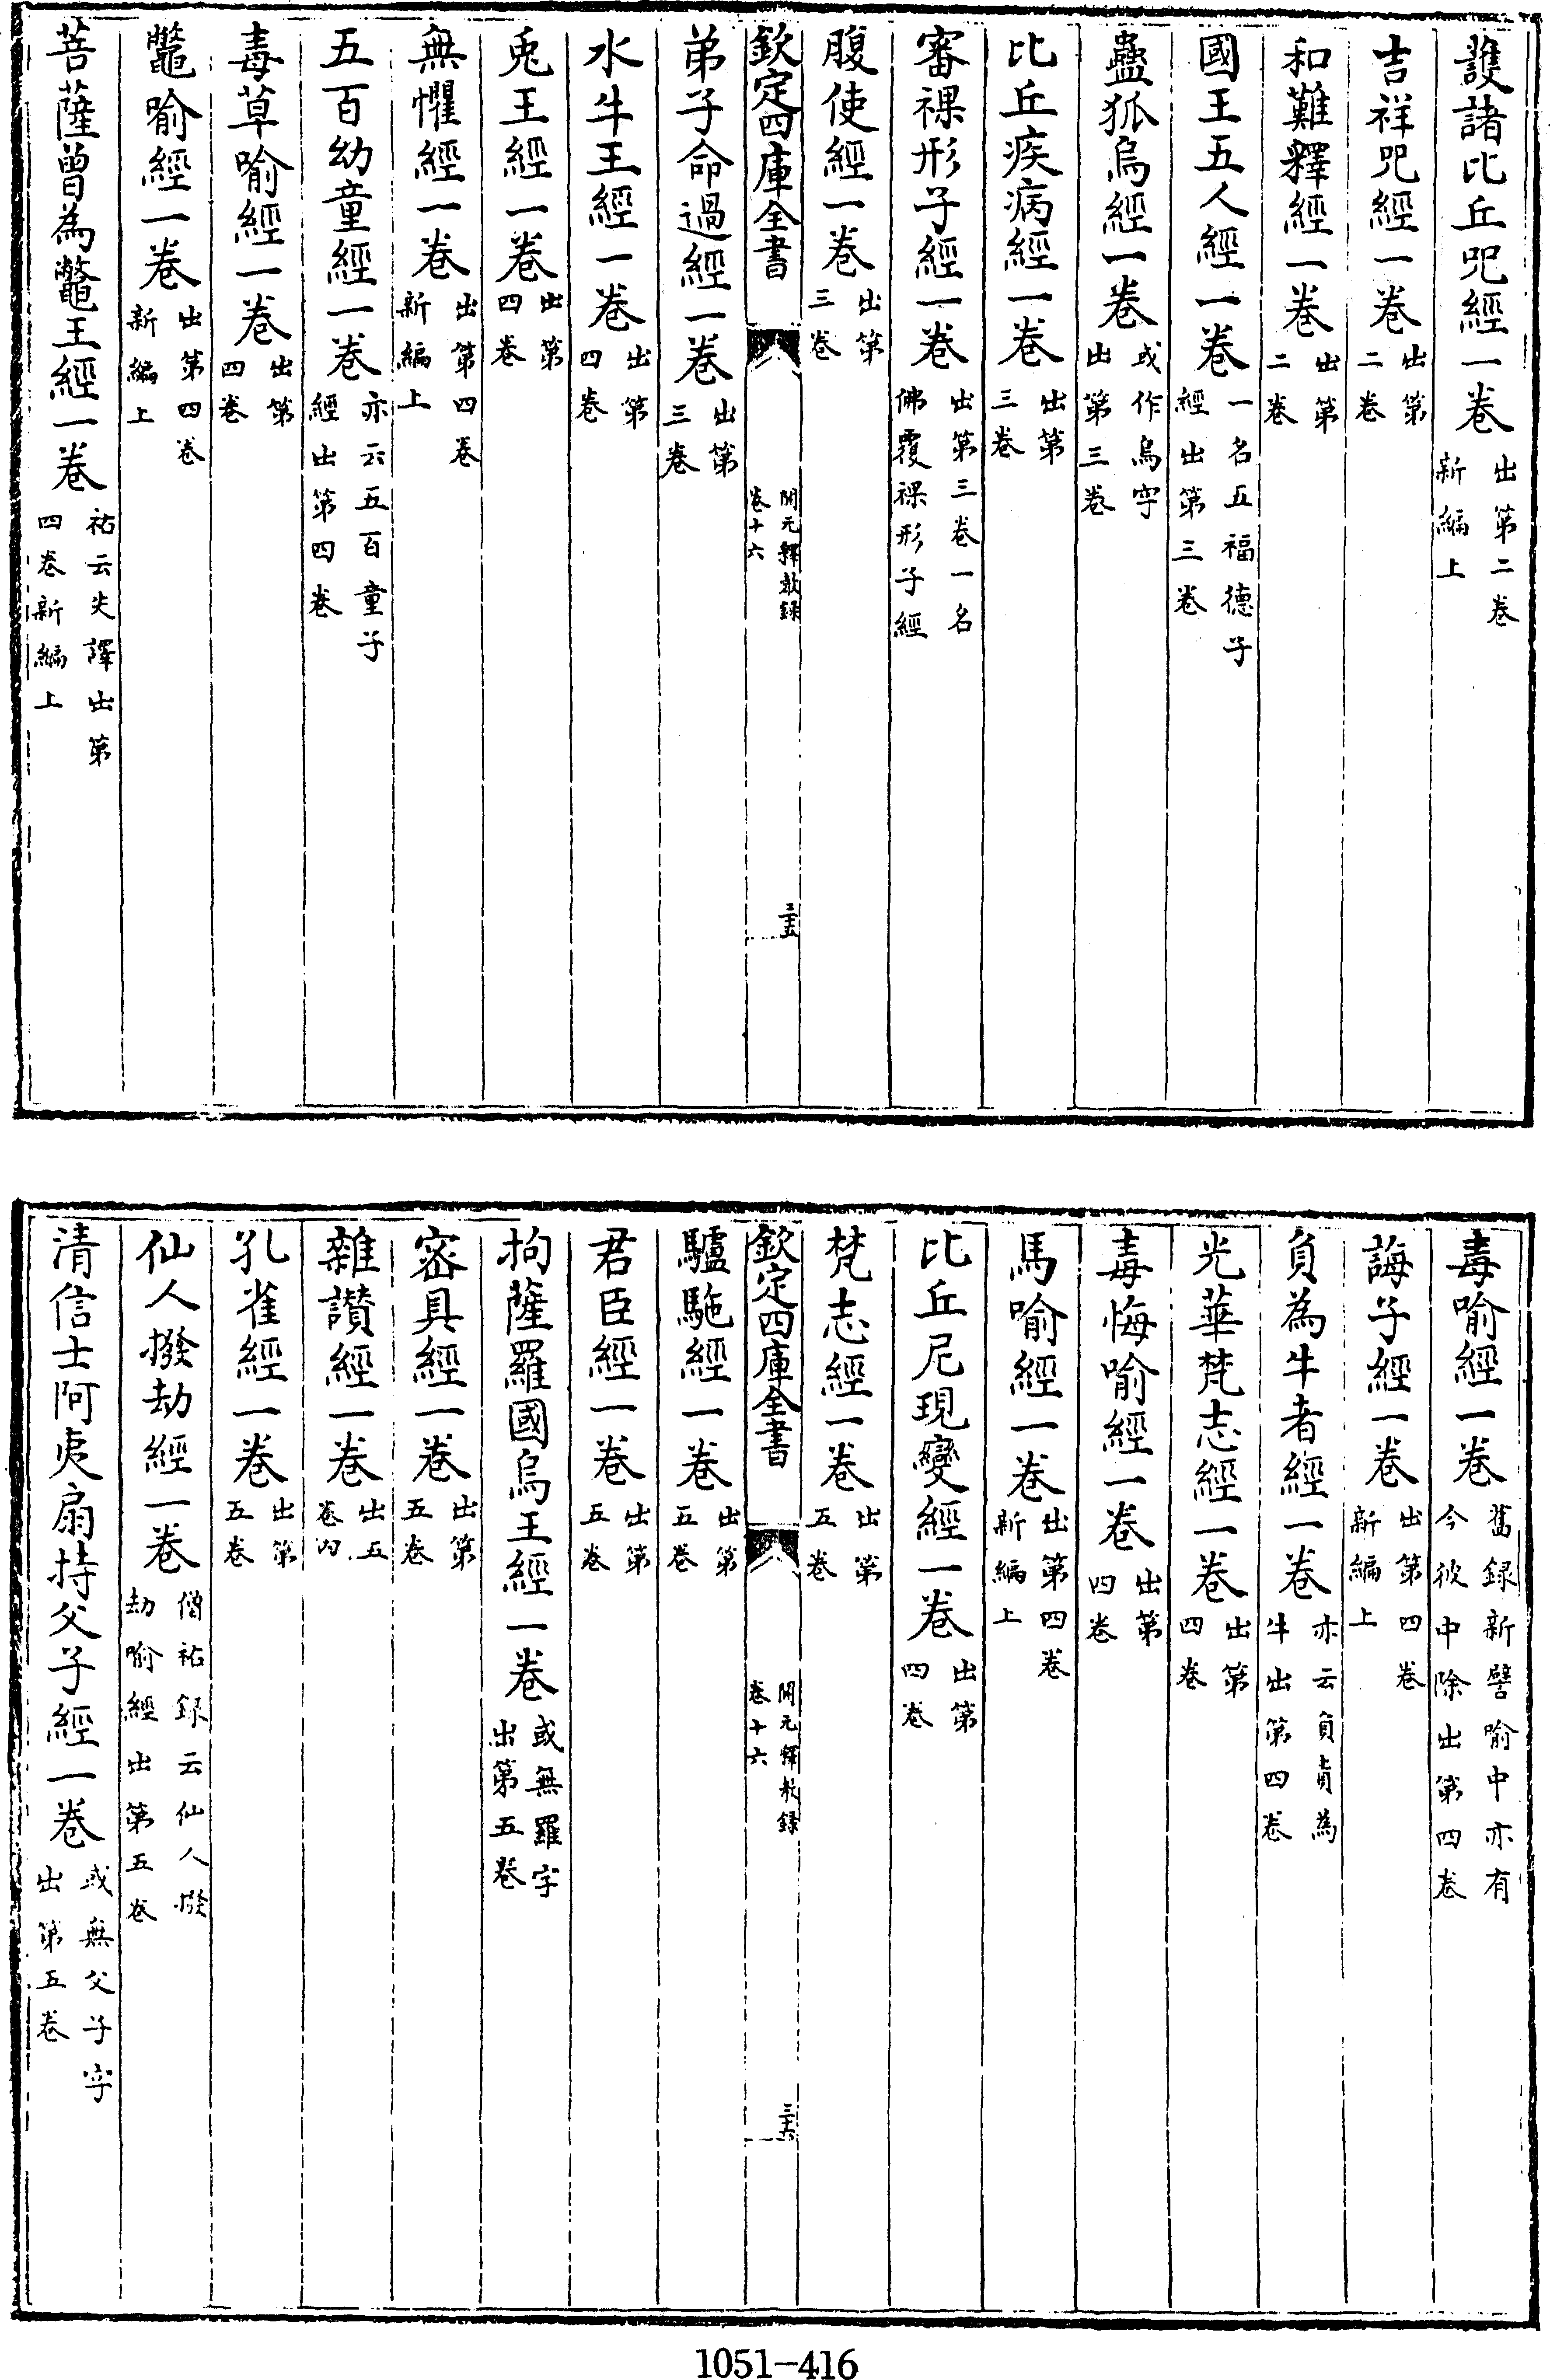 護諸比丘呪經一卷出第二卷新編上
吉祥呪經一卷出第二卷
和難釋經一卷出第二卷
國王五人經一卷一名五福德子經出第三卷
蠱狐烏經一卷或作鳥字出第三卷
比丘疾病經一卷出第三卷
審裸形子經一卷出第三卷一名佛覆裸形子經
腹使經一卷出第三卷
欽定四庫全書 開元釋教録卷十六 三十五
弟子命過經一卷出第三卷
水牛王經一卷出第四卷
兎王經一卷出第四卷
無懼經一卷出第四卷新編上
五百幼童經一卷亦云五百童子經出第四卷
毒草喻經一卷出第四卷
鼈喻經一卷出第四卷新編上
菩薩曾為鼈王經一卷祐云失譯出第四卷新編上
毒喻經一卷舊録新譬喻中亦有今彼中除出第四卷
誨子經一卷出第四卷新編上
負為牛者經一卷亦云負責為牛出第四卷
光華梵志經一卷出第四卷
毒悔喻經一卷出第四卷
馬喻經一卷出第四卷新編上
比丘尼現變經一卷出第四卷
梵志經一卷出第五卷
欽定四庫全書 開元釋教録卷十六 三十六
驢駞經一卷出第五卷
君臣經一卷出第五卷
拘薩羅國烏王經一卷或無羅字出第五卷
密具經一卷出第五卷
雜讚經一卷出五卷内
孔雀經一卷出第五卷
仙人撥劫經一卷僧祐録云仙人撥劫喻經出第五卷
清信士阿夷扇持父子經一卷或無父子字出第五卷
1051-416